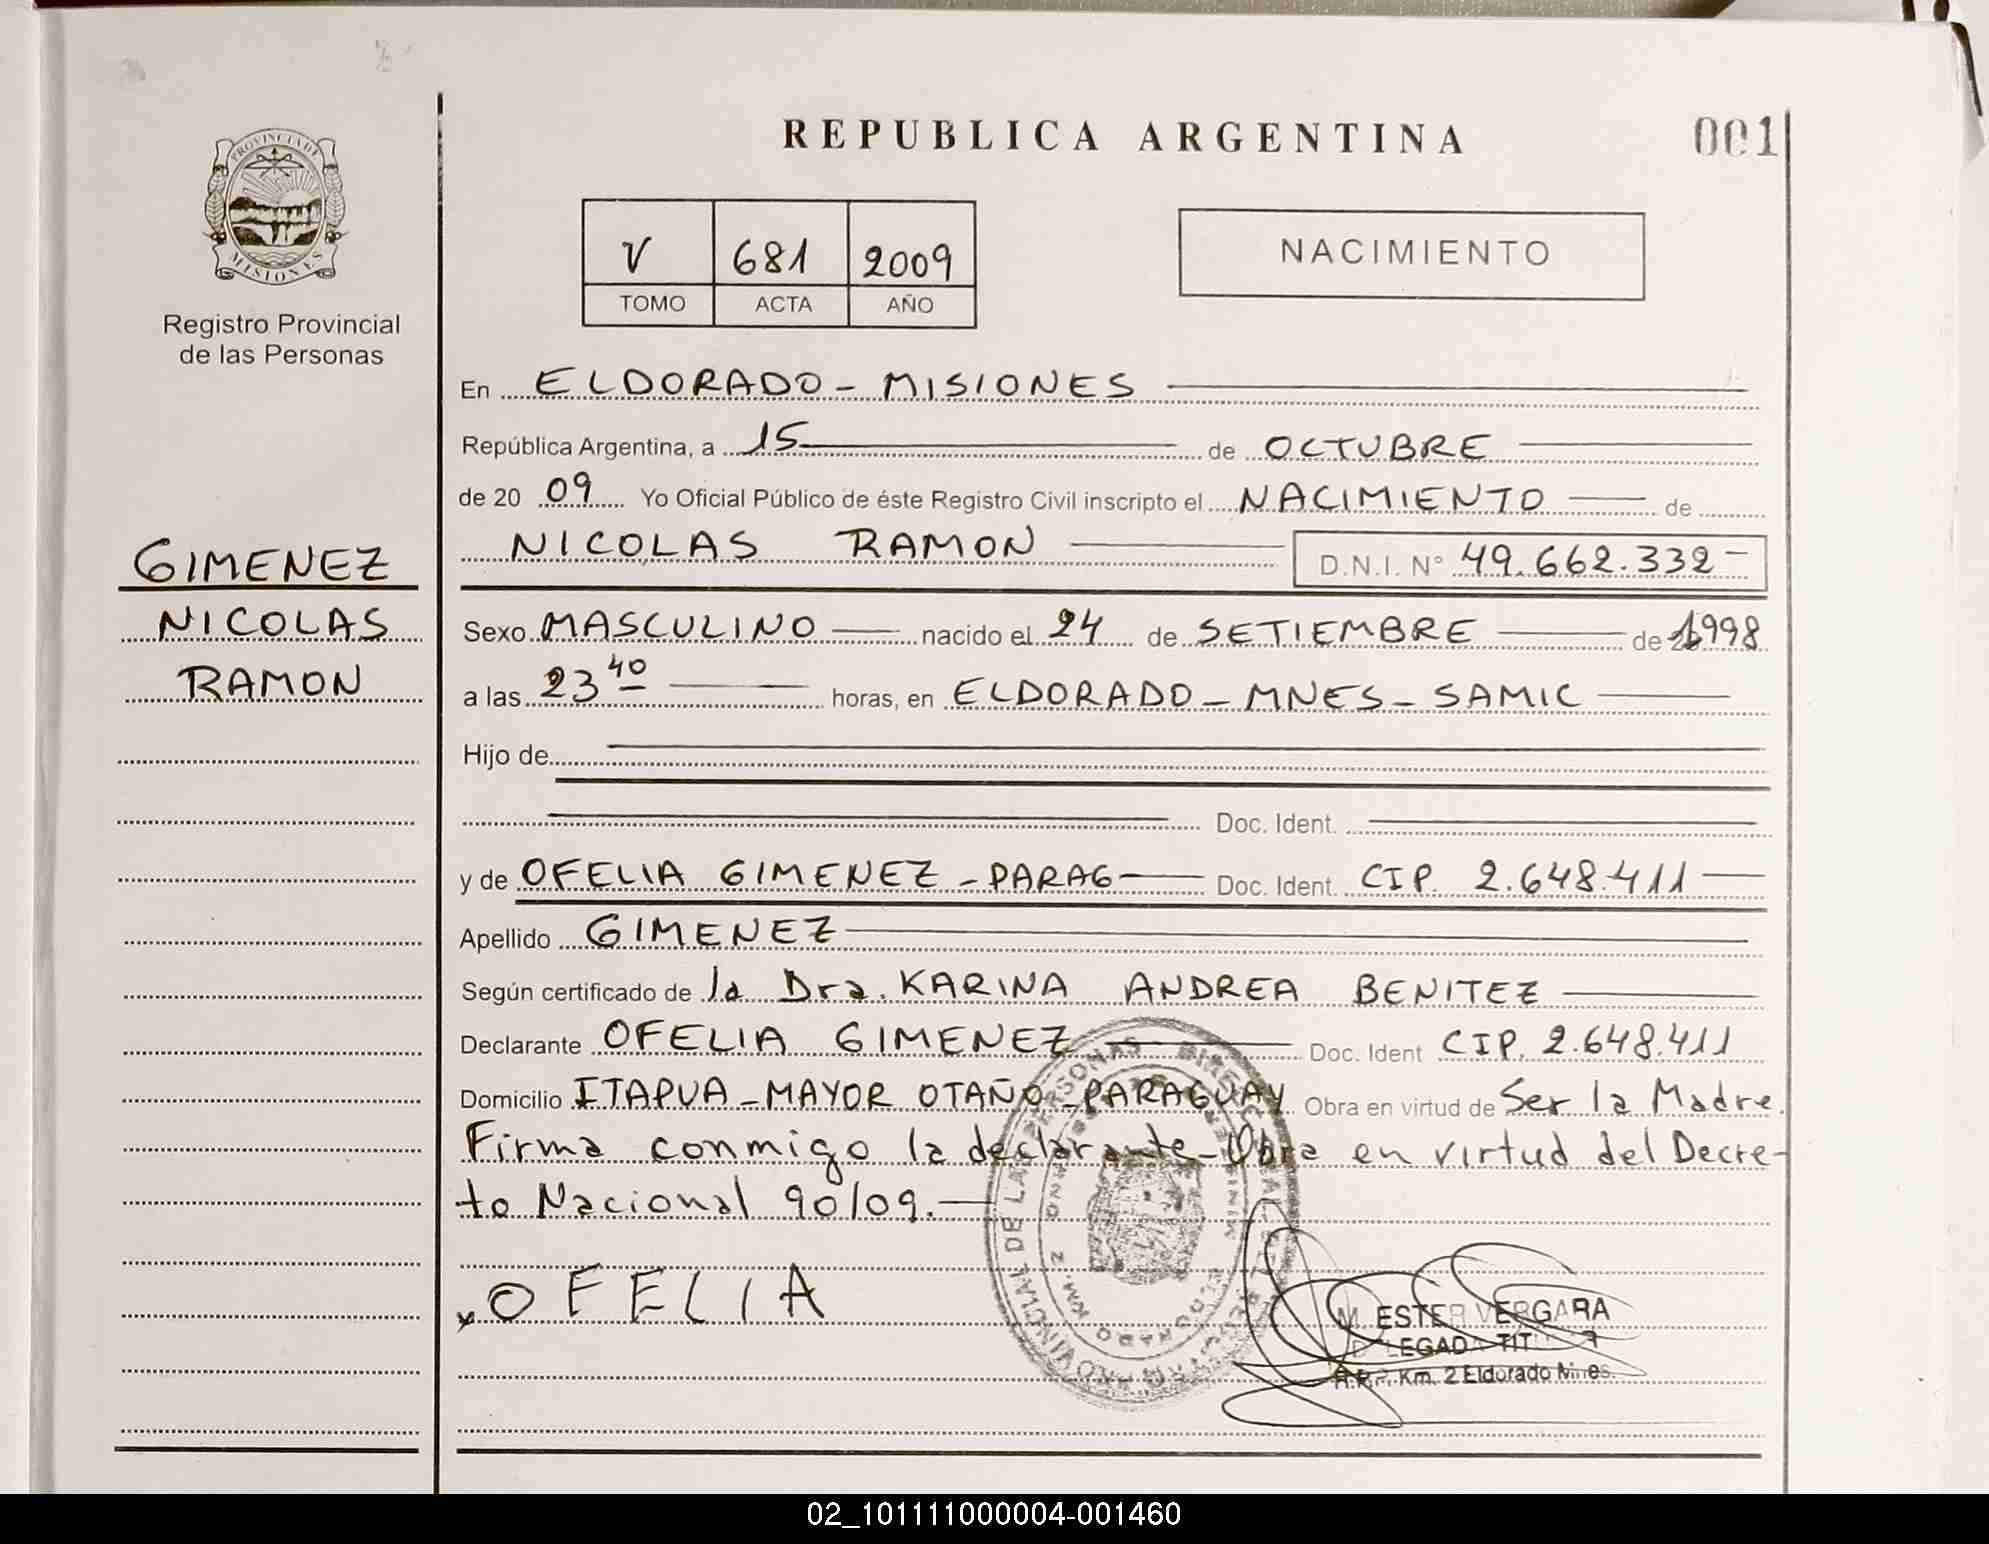 REPUBLICA ARGENTINA
001
PROVINCIA DE
MISIONES
Registro Provincial
de las Personas
V 681 2009
TOMO ACTA AÑO
NACIMIENTO
En ELDORADO - MISIONES
República Argentina, a 15 de OCTUBRE
de 20 09 Yo Oficial Público de éste Registro Civil inscripto el NACIMIENTO de
NICOLAS RAMON D.N.I. N° 49.662.332-
GIMENEZ
NICOLAS
RAMON
Sexo MASCULINO nacido el 24 de SETIEMBRE de 1998
a las 23 40 horas, en ELDORADO - MNES - SAMIC
Hijo de
Doc. Ident.
y de OFELIA GIMENEZ - PARAG Doc. Ident. CIP. 2.648.411
Apellido GIMENEZ
Según certificado de la Dra. KARINA ANDREA BENITEZ
Declarante OFELIA GIMENEZ Doc. Ident CIP. 2.648.411
Domicilio ITAPUA - MAYOR OTAÑO - PARAGUAY Obra en virtud de Ser la Madre.
Firma conmigo la declarante - Obra en virtud del Decre-
to Nacional 90/09.-
x OFELIA
M. ESTER VERGARA
R.P.P. Km. 2 Eldorado Mnes.
02_101111000004-001460